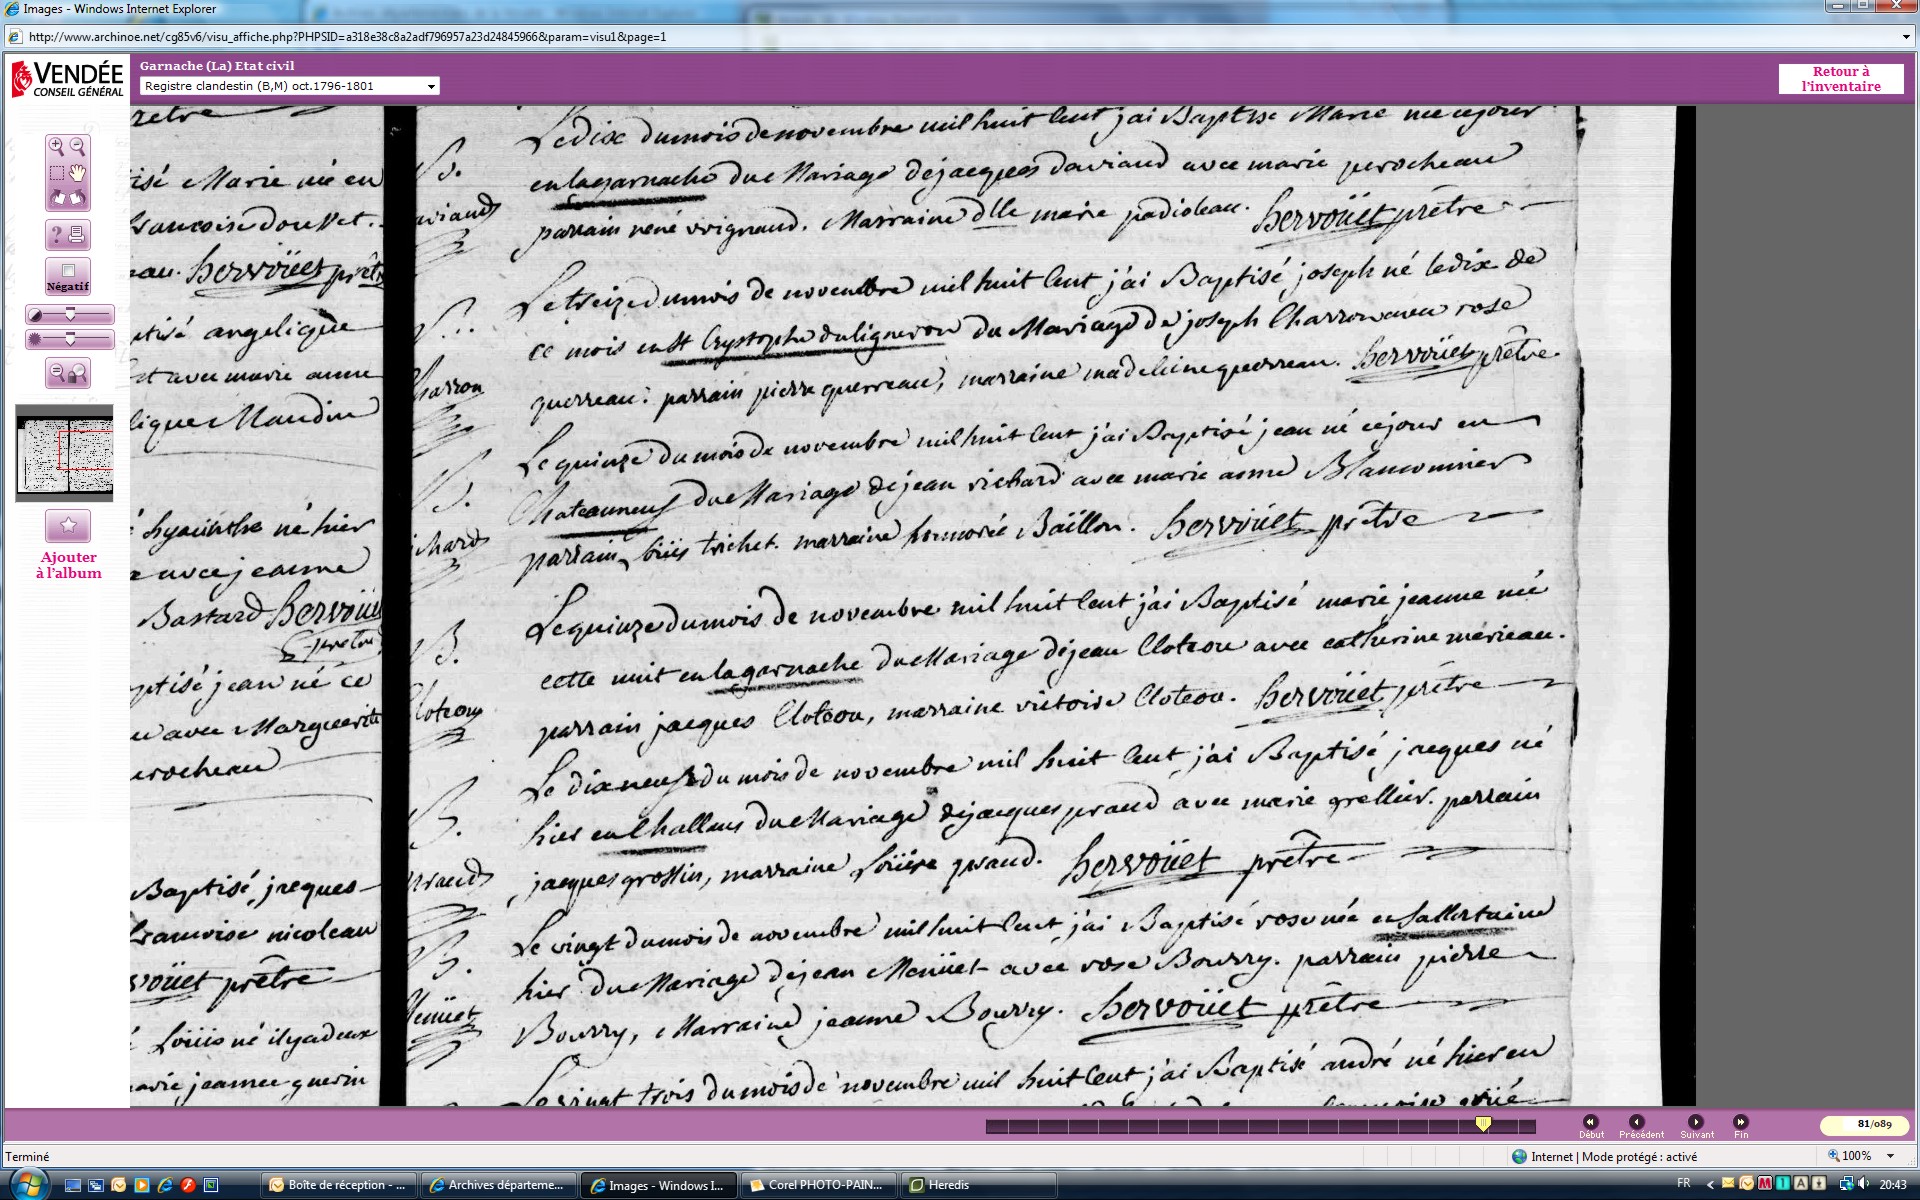 Images - Windows Internet Explorer
http://www.archinoe.net/cg85v6/visu_affiche.php?PHPSID=a318e38c8a2adf796957a23d24845966&param=visu1&page=1
VENDÉE
CONSEIL GÉNÉRAL
Garnache (La) Etat civil
Registre clandestin (B,M) oct.1796-1801
Retour à
l'inventaire
Négatif
Ajouter
à l'album
isé Marie née en
francoise dousset.
eau. hervoüet prêtre
ptisé angelique
et avec marie anne
lique Maudin
é hyacinthe né hier
avec jeanne
Bastard hervoüet
prêtre
ptisé jean né ce
avec Marguerite
erocheau
Baptisé, jacques
francoise nicoleau
voüet prêtre
Loüis né il y a deux
marie jeanne guerin
Le dix du mois de novembre mil huit cent j'ai Baptisé Marie née ce jour
B.
en la garnache du Mariage de jacques daviaud avec marie perocheau
aviaud
parrain rené vrignaud. Marraine dlle marie padioleau. hervoüet prêtre
Le treize du mois de novembre mil huit cent j'ai Baptisé joseph né le dix de
ce mois en st Crystophe du ligneron du Mariage de joseph Charron avec rose
Charron
guerreau: parrain pierre guerreau, marraine madeleine guerreau. hervoüet prêtre
Le quinze du mois de novembre mil huit cent j'ai Baptisé jean né ce jour en
B.
Chateauneuf du Mariage de jean richard avec marie anne Blanconnier
richard
parrain loüis trichet. marraine honnorée Baïllon. hervoüet prêtre
Le quinze du mois de novembre mil huit cent j'ai Baptisé marie jeanne née
B.
cette nuit en la garnache du Mariage de jean Cloteou avec catherine merieau.
Cloteou
parrain jacques Cloteou, marraine victoire Cloteou. hervoüet prêtre
Le dix neuf du mois de novembre mil huit cent j'ai Baptisé, jacques né
B.
hier en Challans du Mariage de jacques praud avec marie grellier. parrain
praud
jacques grossin, marraine praud. hervoüet prêtre
Le vingt du mois de novembre mil huit cent j'ai Baptisé rose née en sallertaine
B.
hier du Mariage de jean Menüet avec rose Bourry. parrain pierre
Menüet
Bourry, Marraine jeanne Bourry. hervoüet prêtre
Le vingt trois du mois de novembre mil huit cent j'ai Baptisé andré né hier en
Début
Précédent
Suivant
Fin
81/089
Terminé
Internet | Mode protégé : activé
100%
Boîte de réception - ...
Archives départeme...
Images - Windows I...
Corel PHOTO-PAIN...
Heredis
FR
20:43